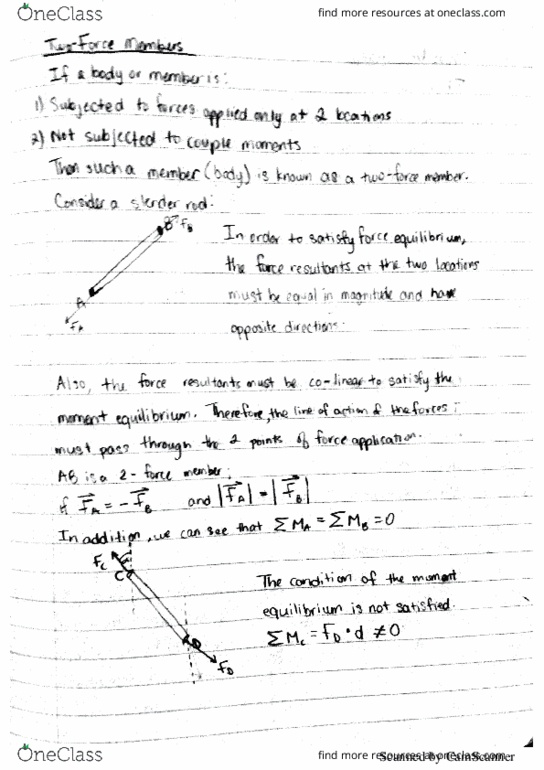 OneClass
find more resources at oneclass.com
Two-Force Members
If a body or member is:
1) Subjected to forces applied only at 2 locations
2) Not subjected to couple moments
Then such a member (body) is known as a two-force member.
Consider a slender rod:
B F_B
In order to satisfy force equilibrium,
the force resultants at the two locations
must be equal in magnitude and have
opposite directions.
A
F_A
Also, the force resultants must be co-linear to satisfy the
moment equilibrium. Therefore, the line of action of the forces
must pass through the 2 points of force application.
AB is a 2-force member:
if F⃗_A = -F⃗_B and |F⃗_A| = |F⃗_B|
In addition, we can see that ΣM_A = ΣM_B = 0
F_C
C
The condition of the moment
equilibrium is not satisfied.
ΣM_C = F_D • d ≠ 0
D
F_D
OneClass
find more resources at oneclass.com
Scanned by CamScanner